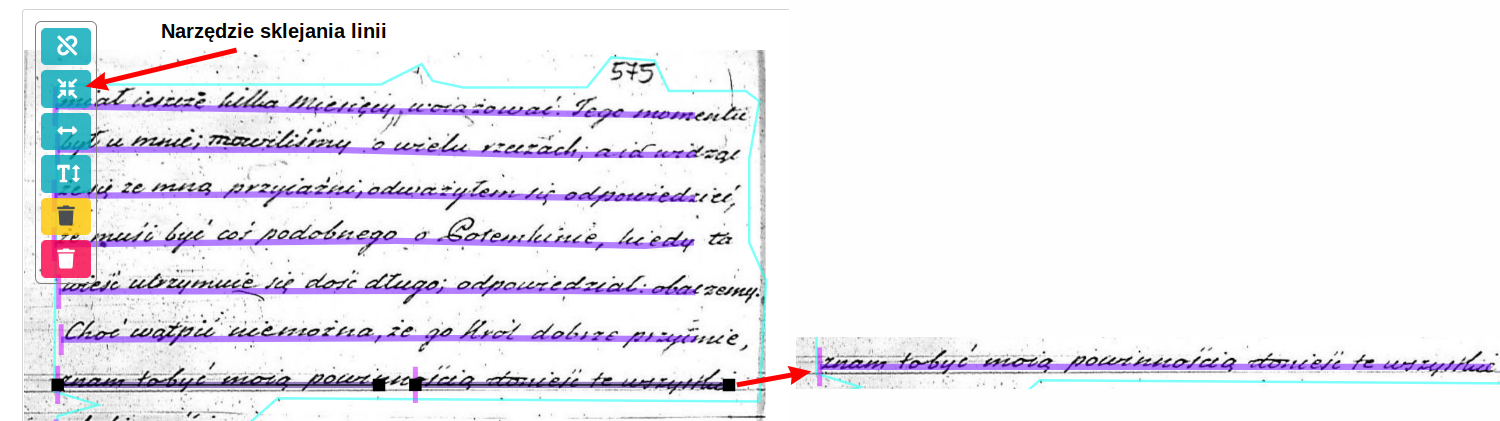 Narzędzie sklejania linii
575
miał ieszcze kilka miesięcy, uważować. Tego momentu
był u mnie; mowiliśmy o wielu rzeczach, a iá widząc
że się ze mną przyiaźni, odważyłem się odpowiedzieć,
że musi być coś podobnego o Potemkinie, kiedy ta
wieść utrzymuie się dość długo; odpowiedział: obaczemy.
Choć wątpić niemożna, że go Król dobrze przyimie,
znam tobyć moią powinnością donieść te wszystkie
znam tobyć moią powinnością donieść te wszystkie